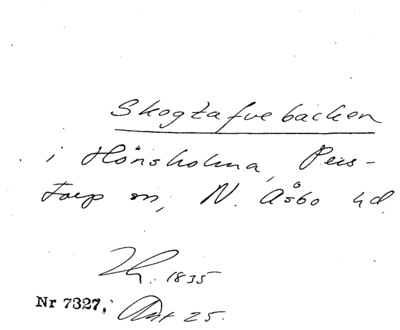 Skogtafvebäcken
i Hönsholma, Pers-
torp sn, N. Åsbo hd.
1835
Nr 7327, Akt 25.